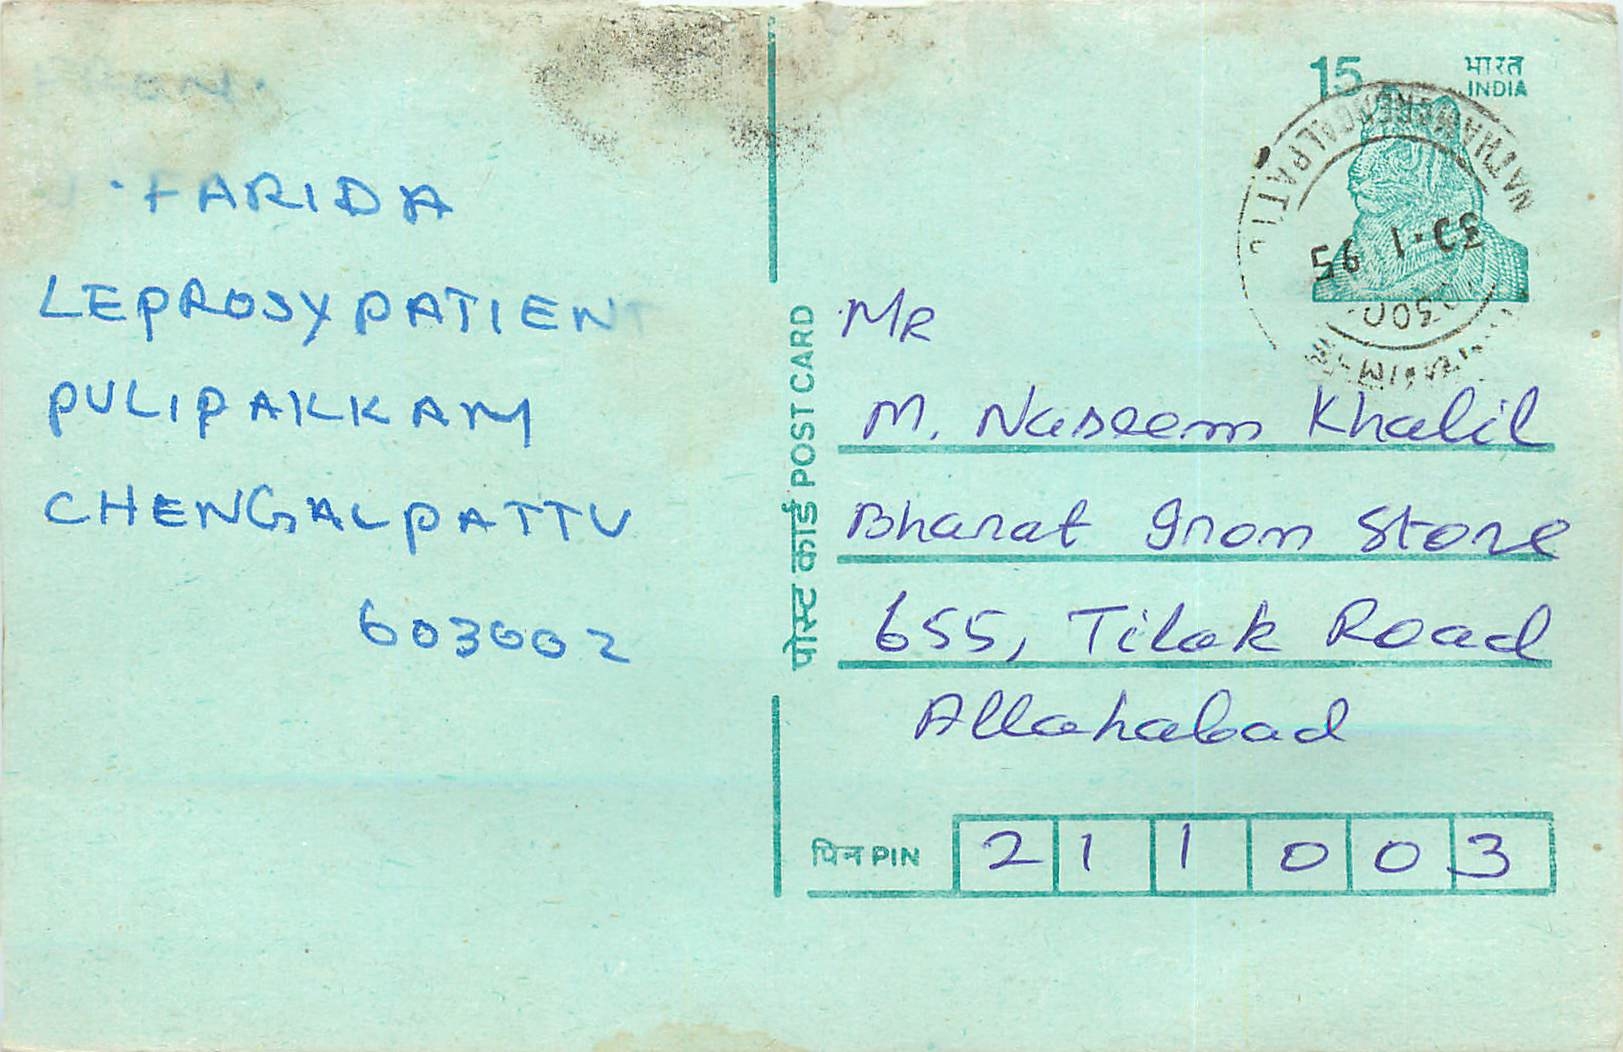 FROM.
J. FARIDA
LEPROSY PATIENT
PULIPAKKAM
CHENGALPATTU
603002
पोस्ट कार्ड POST CARD
15
भारत
INDIA
Mr
M. Naseem Khalil
Bharat Iron Store
655, Tilak Road
Allahabad
पिन PIN
2 1 1 0 0 3